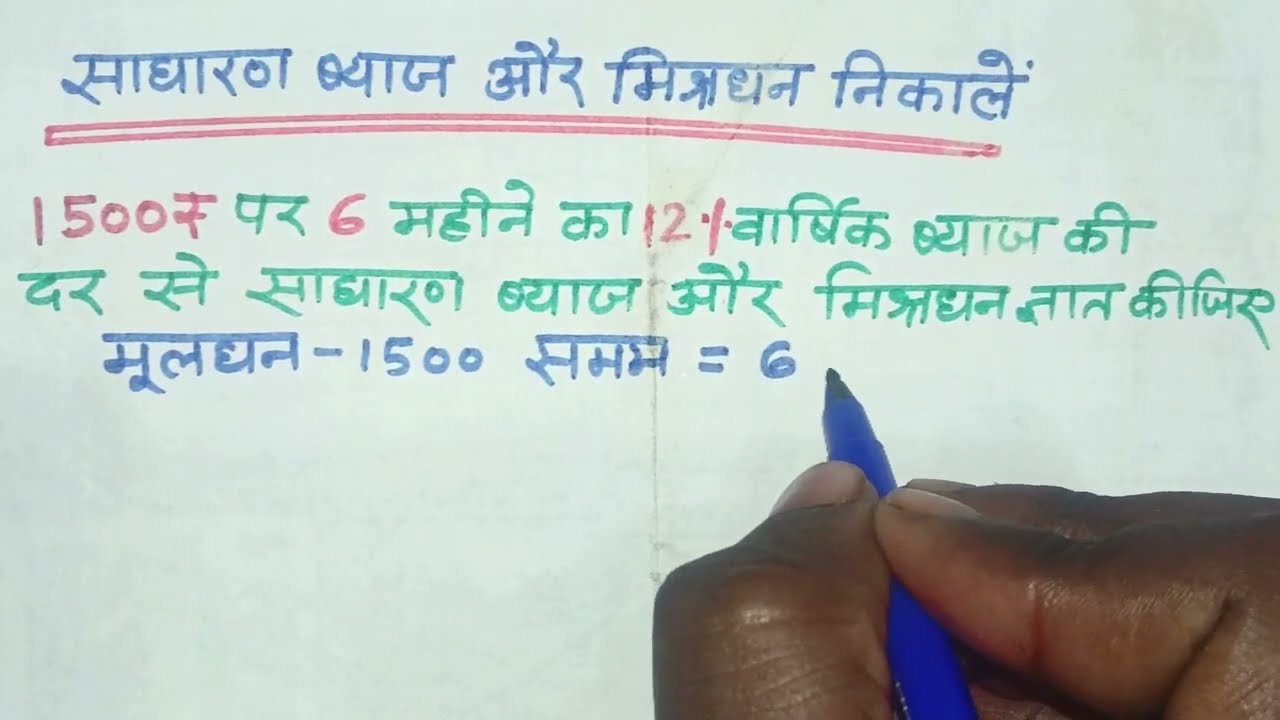 साधारण ब्याज और मिश्रधन निकालें
1500₹ पर 6 महीने का 12% वार्षिक ब्याज की
दर से साधारण ब्याज और मिश्रधन ज्ञात कीजिए
मूलधन - 1500 समम = 6